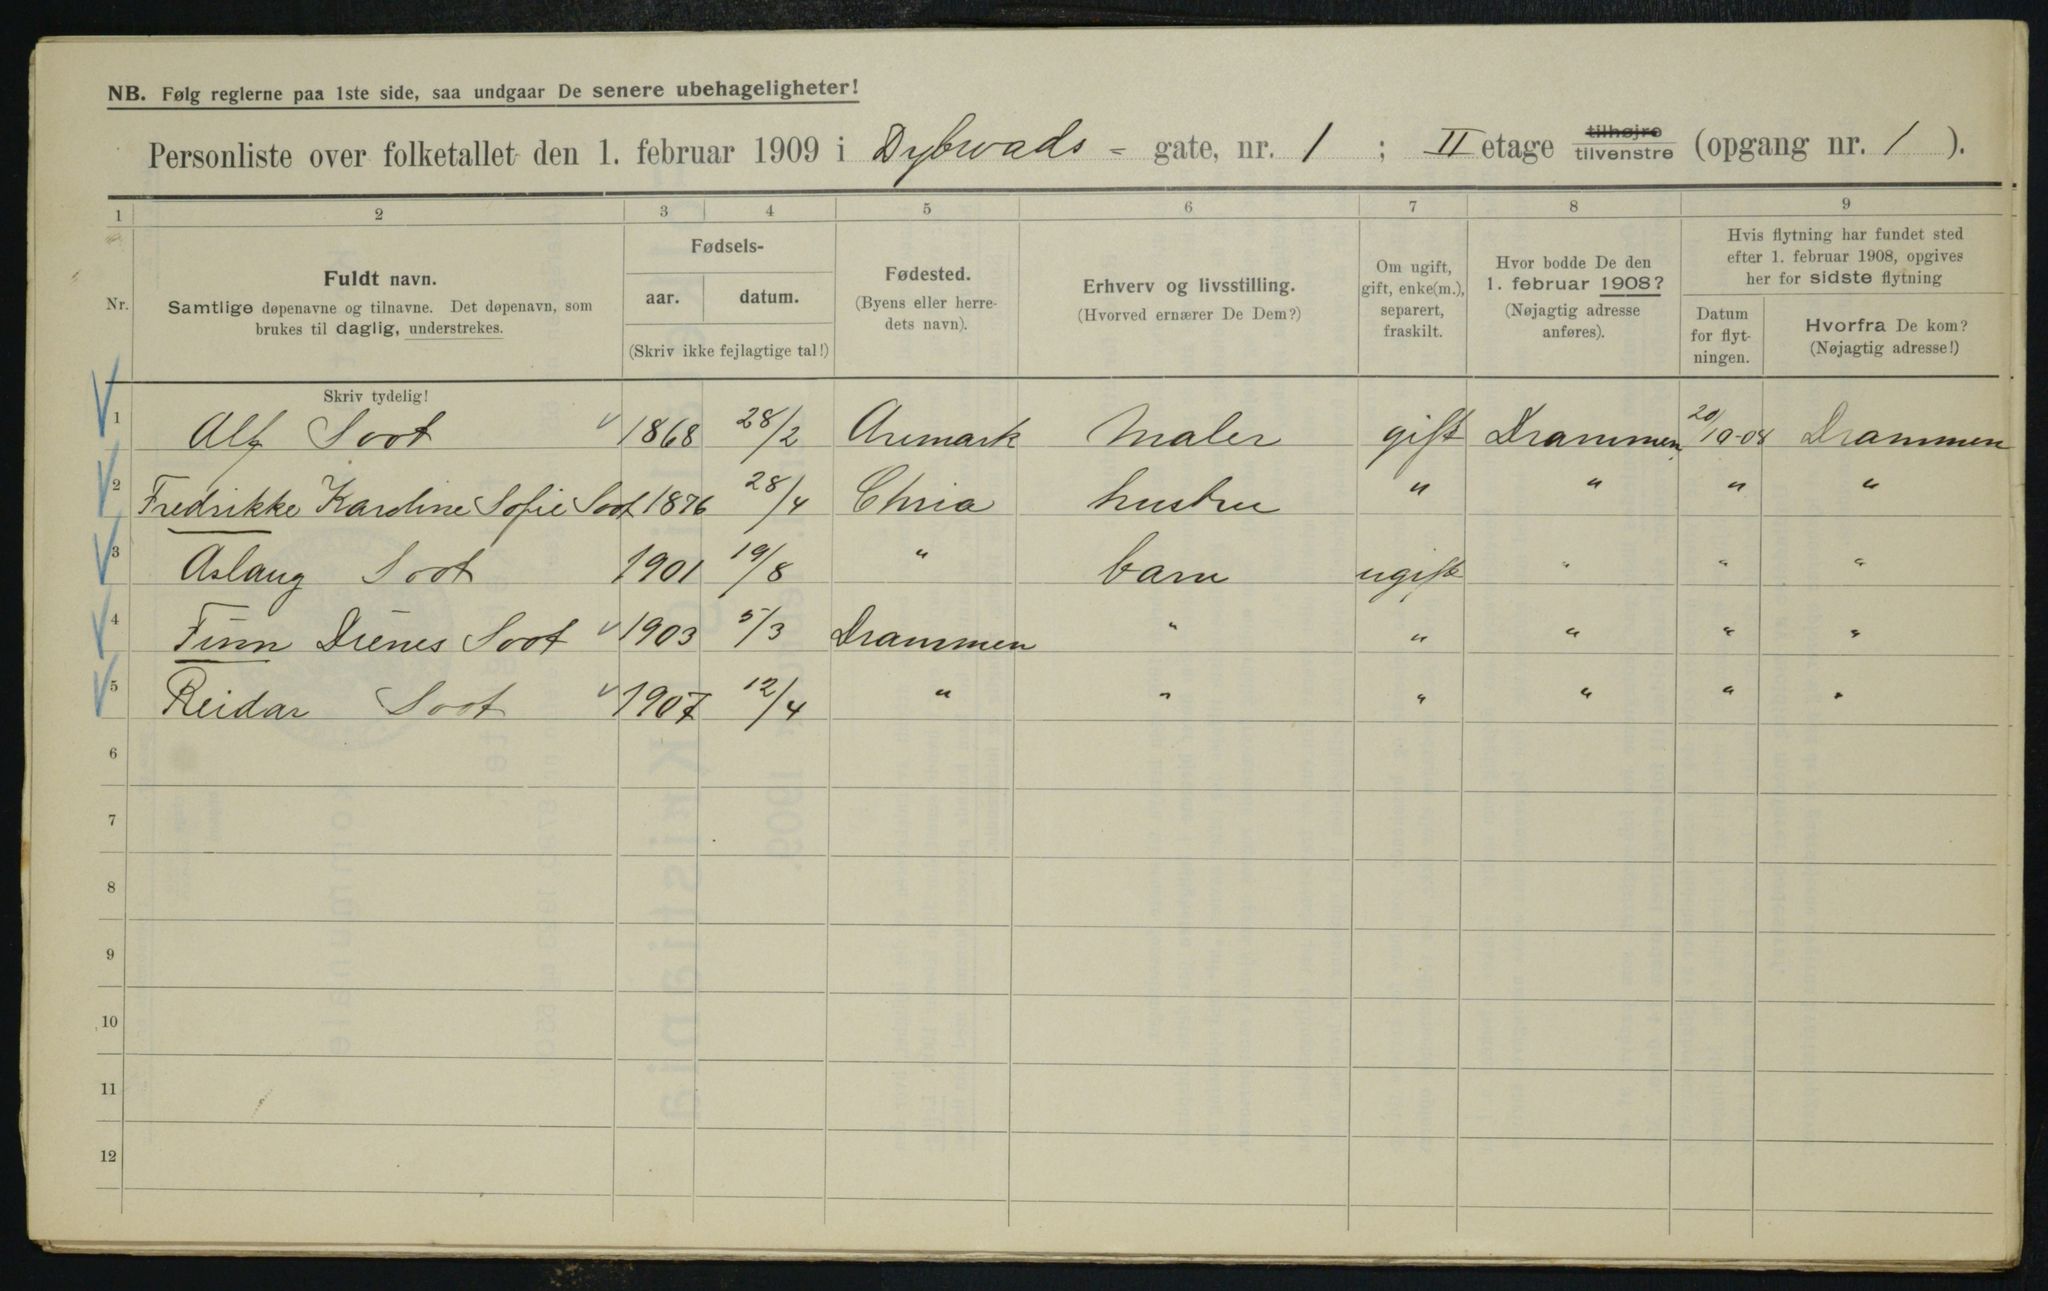 NB. Følg reglerne paa 1ste side, saa undgaar De senere ubehageligheter!
Personliste over folketallet den 1. februar 1909 i Dybwads - gate, nr. 1 ; II etage tilhøjre tilvenstre (opgang nr. 1 ).
1 2 3 4 5 6 7 8 9
Nr.
Fuldt navn.
Samtlige døpenavne og tilnavne. Det døpenavn, som
brukes til daglig, understrekes.
Fødsels-
aar. datum.
(Skriv ikke fejlagtige tal!)
Fødested.
(Byens eller herre-
dets navn).
Erhverv og livsstilling.
(Hvorved ernærer De Dem?)
Om ugift,
gift, enke(m.),
separert,
fraskilt.
Hvor bodde De den
1. februar 1908?
(Nøjagtig adresse
anføres).
Hvis flytning har fundet sted
efter 1. februar 1908, opgives
her for sidste flytning
Datum
for flyt-
ningen.
Hvorfra De kom?
(Nøjagtig adresse!)
Skriv tydelig!
1 Alf Soot 1868 28/2 Aremark Maler gift Drammen 20/10-08 Drammen
2 Fredrikke Karoline Sofie Soot 1876 28/4 Chria hustru " " " "
3 Aslaug Soot 1901 19/8 " barn ugift " " "
4 Finn Dienes Soot 1903 5/3 Drammen " " " " "
5 Reidar Soot 1907 12/4 " " " " " "
6
7
8
9
10
11
12